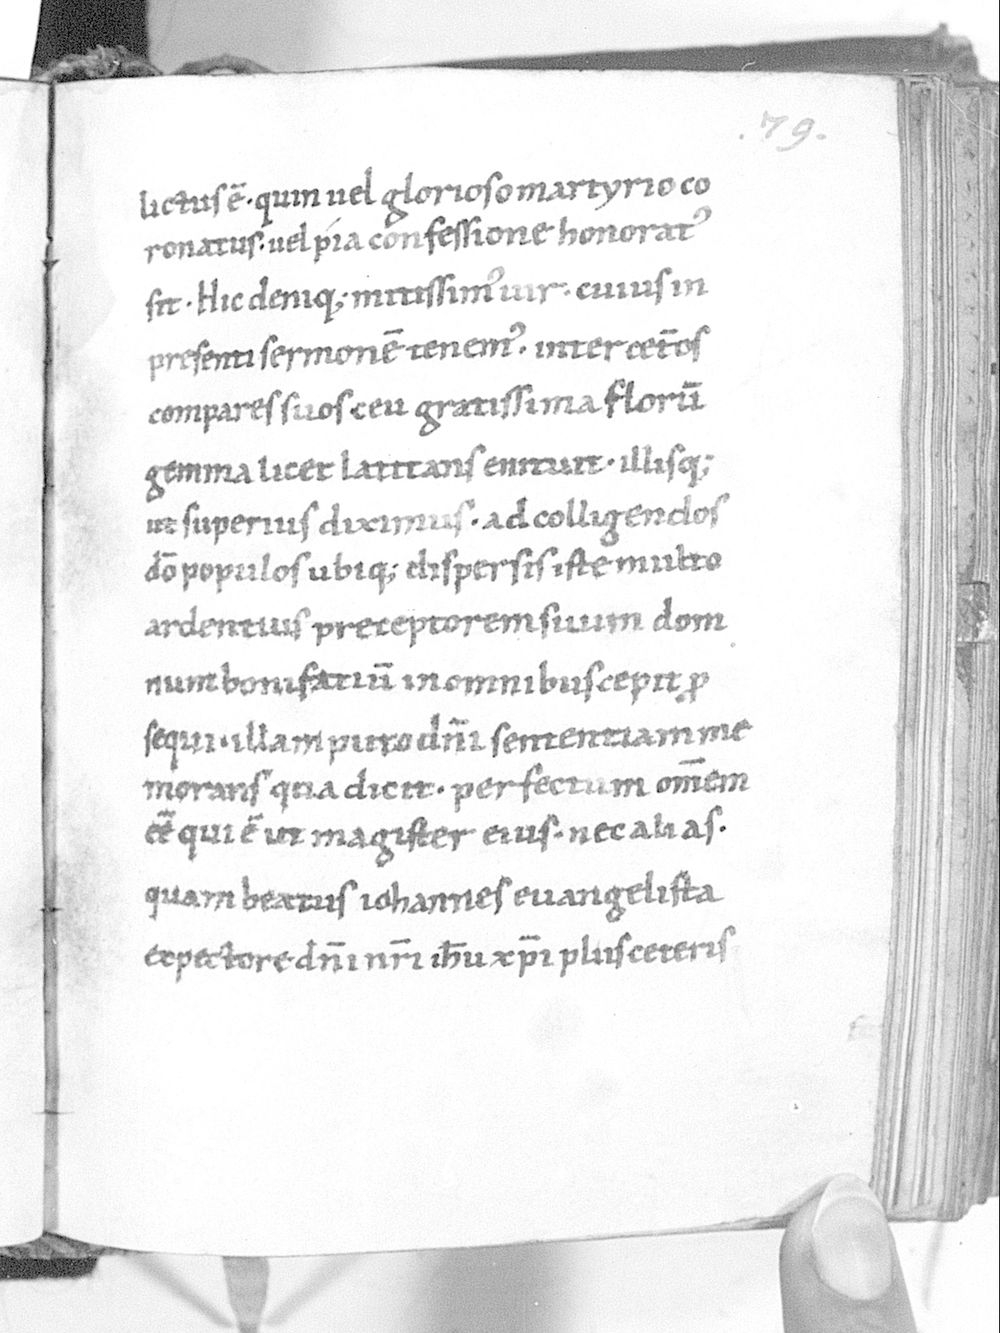 .79.
lictus ē · quin uel glorioso martyrio co
ronatus · uel pia confessione honoratꝰ
sit · Hic deniq; mitissimꝰ uir · cuius in
presenti sermonē tenemꝰ · inter cet̄os
compares suos ceu gratissima florū
gemma licet latitans enituit · illisq;
ut superius diximus · ad colligendos
dō populos ubiq; dispersis iste multo
ardentius preceptorem suum dom
num bonifatiū in omnibus cepit ꝓ
sequi · illam puto dn̄i sententiam me
morans qua dicit · perfectum om̄em
eē̄ qui ē ut magister eius · nec alias ·
quam beatus iohannes euangelista
expectore dn̄i nr̄i ih̄u xp̄i plus ceteris